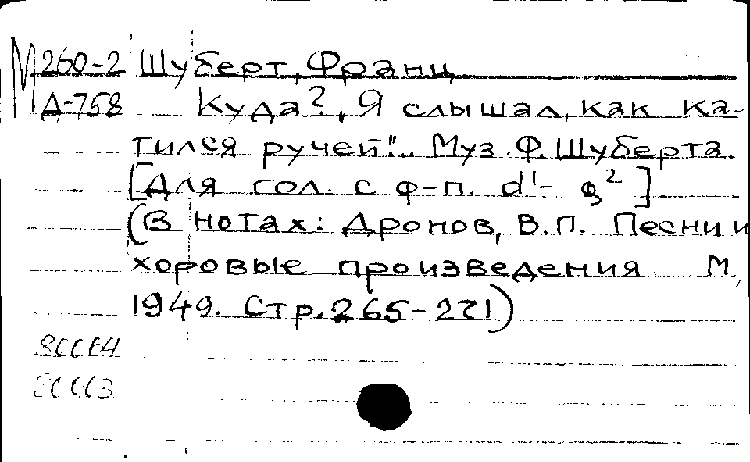 М 260-2 Шуберт, Франц
Д-758 Куда? „Я слышал, как ка-
тился ручей".. Муз. Ф. Шуберта.
[Для гол. с ф-п. d¹- g²]
(В нотах: Дронов, В.П. Песни и
хоровые произведения М,
1949. Стр. 265-271)